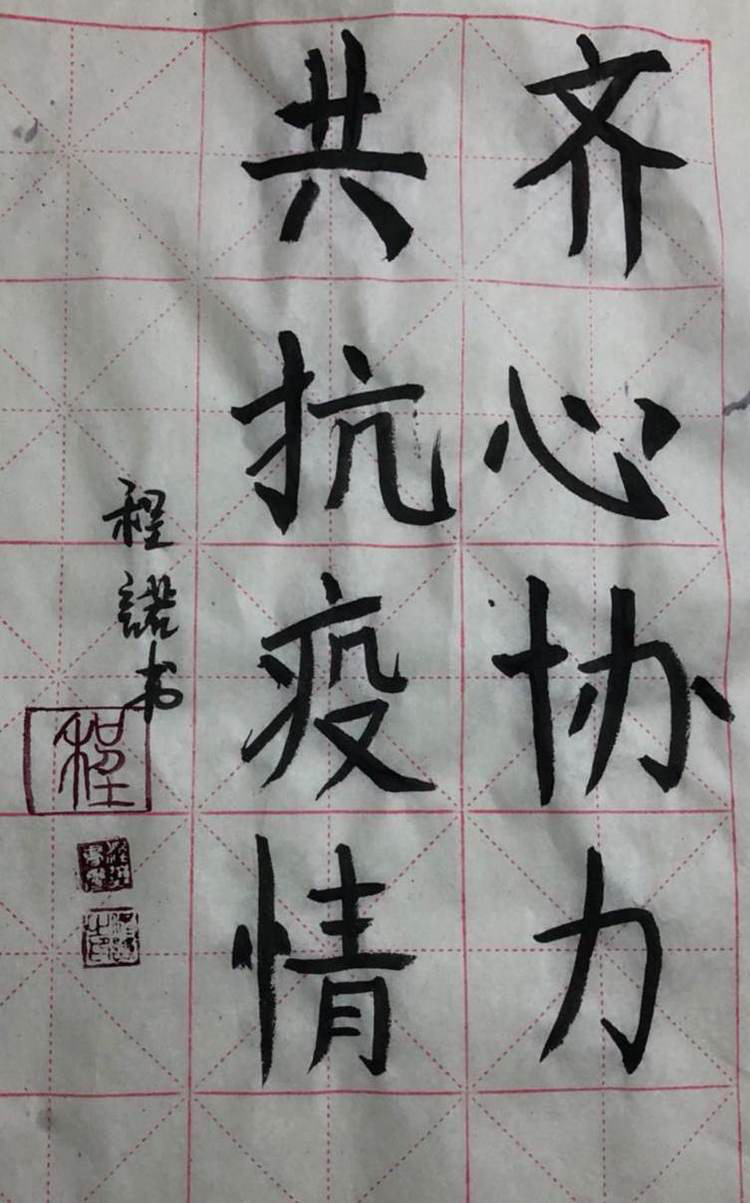 齐心协力
共抗疫情
程諾书
程